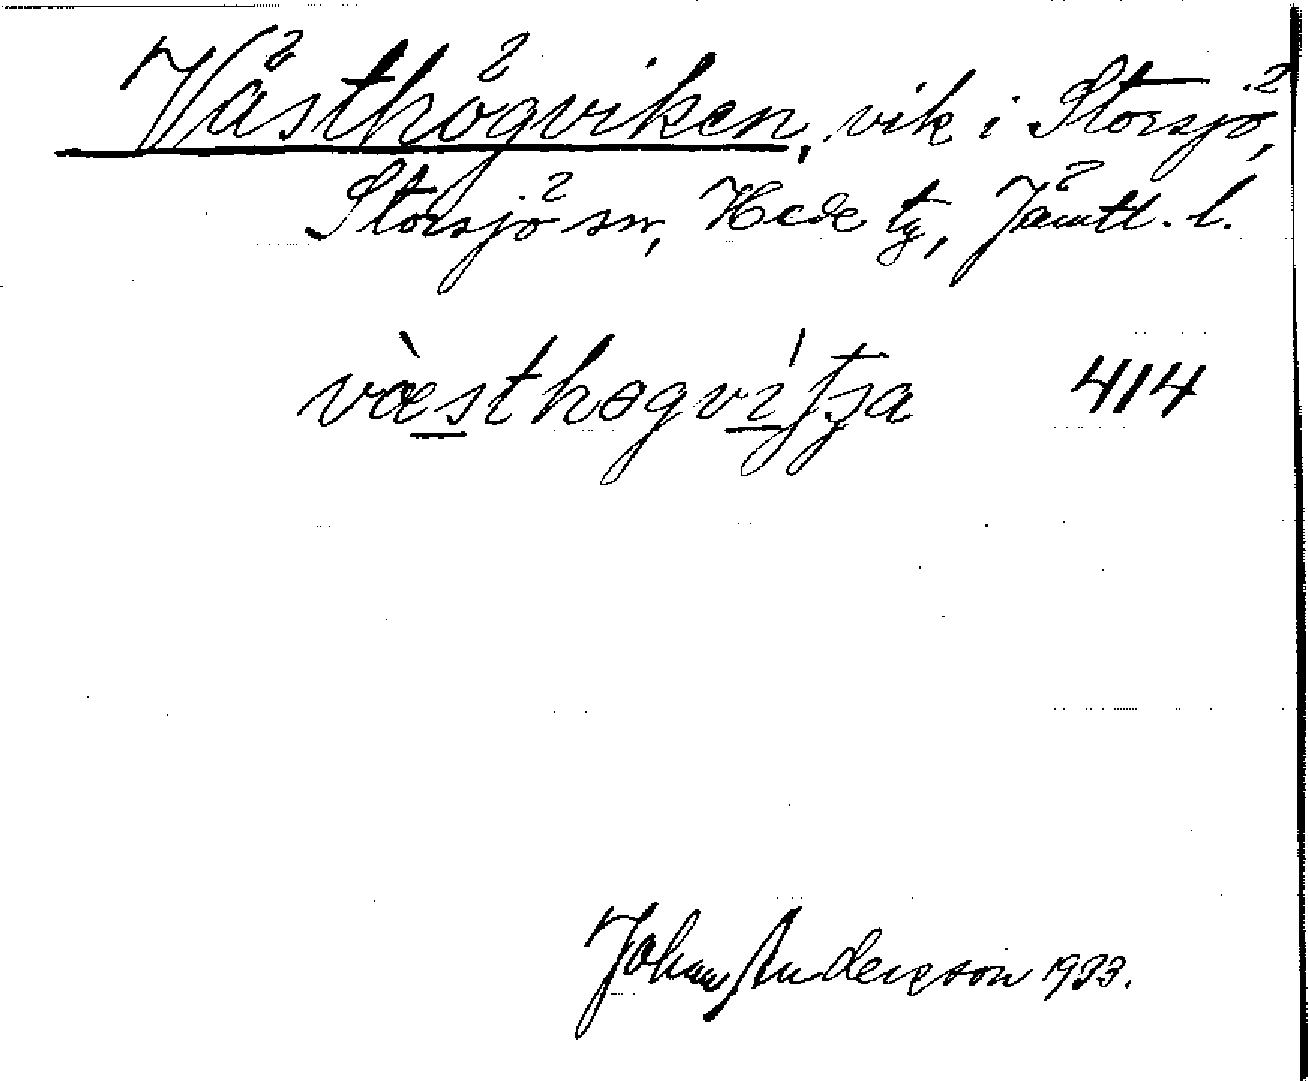 Västhögviken, vik i Storsjö,
Storsjö sn, Hede tg, Jämtl. l.
væ̀sthøgvítʃa 414
Johan Anderson 1933.